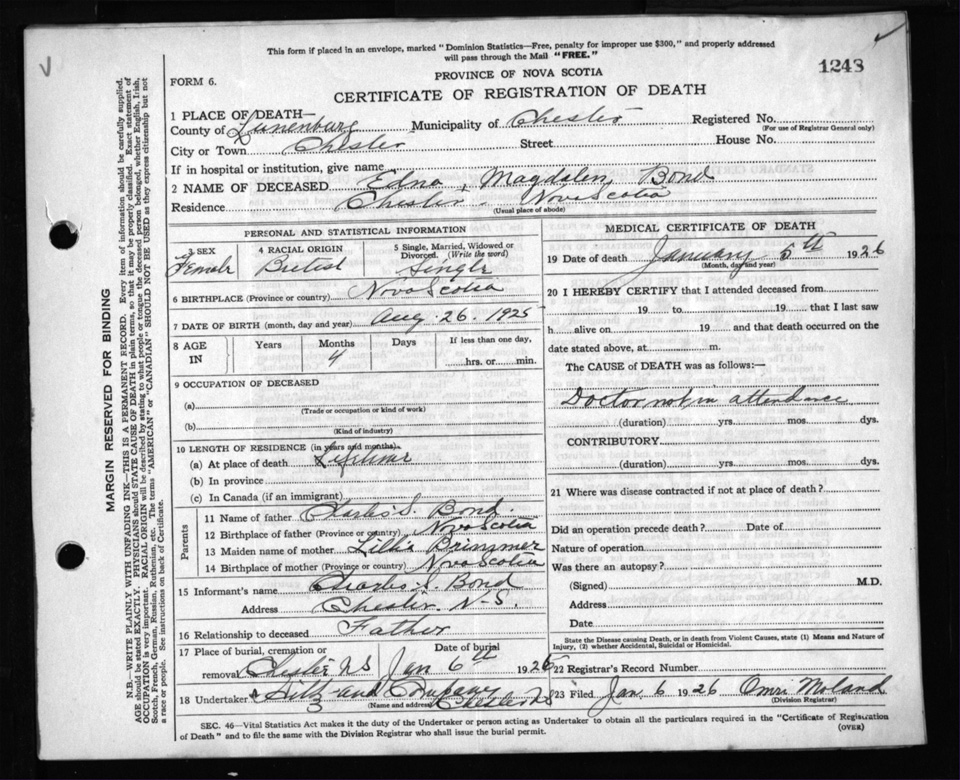 This form if placed in an envelope, marked "Dominion Statistics—Free, penalty for improper use $300," and properly addressed
will pass through the Mail "FREE."
1243
PROVINCE OF NOVA SCOTIA
FORM 6.
CERTIFICATE OF REGISTRATION OF DEATH
1 PLACE OF DEATH—
County of Lunenburg Municipality of Chester Registered No.
(For use of Registrar General only)
City or Town Chester Street House No.
If in hospital or institution, give name
2 NAME OF DECEASED Edna Magdalen Bond
Residence Chester Nova Scotia
(Usual place of abode)
PERSONAL AND STATISTICAL INFORMATION
3 SEX Female
4 RACIAL ORIGIN British
5 Single, Married, Widowed or Divorced. (Write the word) Single
6 BIRTHPLACE (Province or country) Nova Scotia
7 DATE OF BIRTH (month, day and year) Aug. 26. 1925
8 AGE IN Years Months 4 Days If less than one day, hrs. or min.
9 OCCUPATION OF DECEASED
(a)
(Trade or occupation or kind of work)
(b)
(Kind of industry)
10 LENGTH OF RESIDENCE (in years and months).
(a) At place of death Lifetime
(b) In province
(c) In Canada (if an immigrant)
Parents
11 Name of father Charles S. Bond.
12 Birthplace of father (Province or country) Nova Scotia
13 Maiden name of mother Lillie
14 Birthplace of mother (Province or country) Nova Scotia
15 Informant's name Charles S. Bond
Address Chester. N.S.
16 Relationship to deceased Father
17 Place of burial, cremation or removal Chester NS Date of burial Jan 6th 1926
18 Undertaker and Company
(Name and address) Chester NS
MEDICAL CERTIFICATE OF DEATH
19 Date of death January 5th 1926
(Month, day and year)
20 I HEREBY CERTIFY that I attended deceased from
19 to 19 that I last saw
h alive on 19 and that death occurred on the
date stated above, at m.
The CAUSE of DEATH was as follows:—
Doctor not in attendance
(duration) yrs. mos. dys.
CONTRIBUTORY
(duration) yrs. mos. dys.
21 Where was disease contracted if not at place of death?
Did an operation precede death? Date of
Nature of operation
Was there an autopsy?
(Signed) M.D.
Address
Date
State the Disease causing Death, or in death from Violent Causes, state (1) Means and Nature of
Injury, (2) whether Accidental, Suicidal or Homicidal.
22 Registrar's Record Number
23 Filed Jan. 6 1926 Omri
(Division Registrar)
SEC. 46—Vital Statistics Act makes it the duty of the Undertaker or person acting as Undertaker to obtain all the particulars required in the "Certificate of Registration
of Death" and to file the same with the Division Registrar who shall issue the burial permit.
(OVER)
MARGIN RESERVED FOR BINDING
N.B.—WRITE PLAINLY WITH UNFADING INK—THIS IS A PERMANENT RECORD. Every item of information should be carefully supplied.
AGE should be stated EXACTLY. PHYSICIANS should STATE CAUSE OF DEATH in plain terms, so that it may be properly classified. Exact statement of
OCCUPATION is very important. RACIAL ORIGIN will be described by stating to what people or tongue the deceased person belonged, whether English, Irish,
Scotch, French, German, Russian, Ruthenian, etc. The terms "AMERICAN" or "CANADIAN" SHOULD NOT BE USED as they express citizenship but not
a race or people. See instructions on back of Certificate.